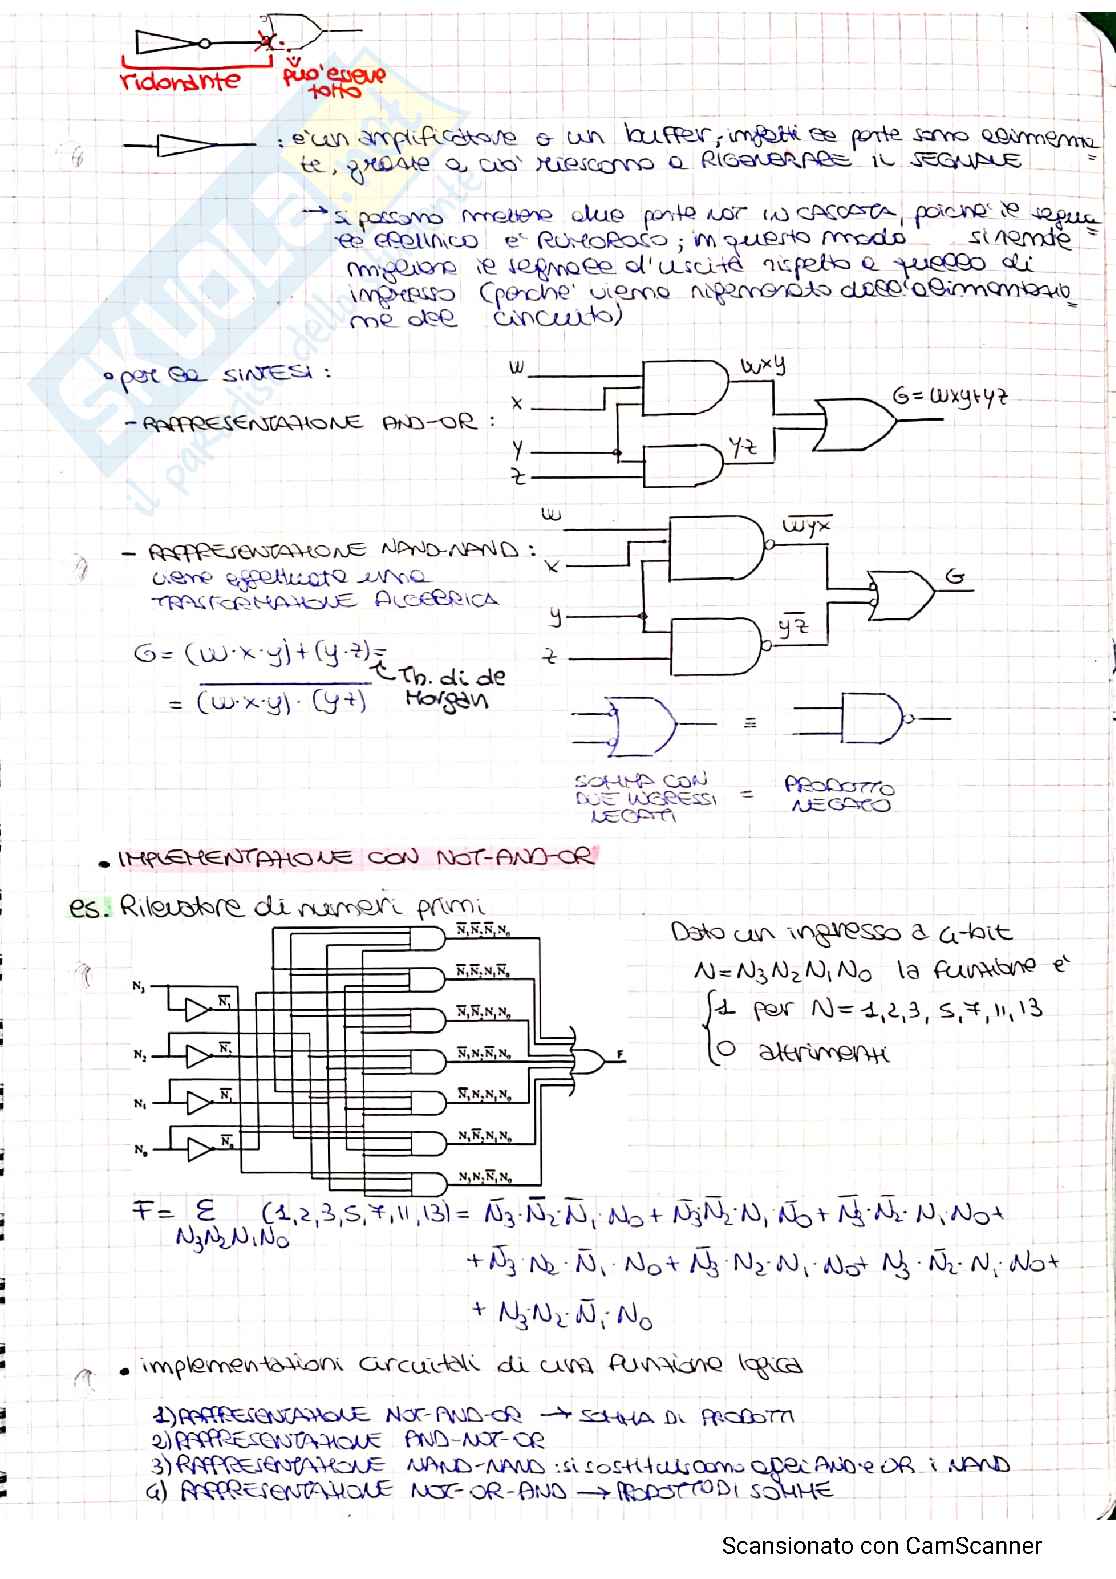 ridondante
può essere
tolto
: è un amplificatore o un buffer, infatti le porte sono alimenta
te, grazie a ciò riescono a RIGENERARE IL SEGNALE
→ si possono mettere due porte NOT IN CASCATA, poiché il segna
le è RUMOROSO; in questo modo si rende
migliore il segnale d'uscita rispetto a quello di
ingresso (perché viene rigenerato dall'alimentazio
ne del circuito)
• per la SINTESI:
- RAPPRESENTAZIONE AND-OR:
W
X
Y
Z
WXY
YZ
G=WXY+YZ
- RAPPRESENTAZIONE NAND-NAND:
viene effettuata una
TRASFORMAZIONE ALGEBRICA
W
X
y
Z
W̅Y̅X̅
y̅z̅
G
G = (W·X·y)+(y·z)=
Th. di de
Morgan
= (W·X·y)·(yz)
≡
SOMMA CON
DUE INGRESSI
NEGATI
=
PRODOTTO
NEGATO
• IMPLEMENTAZIONE CON NOT-AND-OR
es: Rilevatore di numeri primi
Dato un ingresso a 4-bit
N=N3N2N1N0 la funzione è
{1 per N=1,2,3,5,7,11,13
0 altrimenti
N₃
N₂
N₁
N₀
F
F = Σ (1,2,3,5,7,11,13) = N̅3·N̅2·N̅1·N0 + N̅3N̅2·N1·N̅0 + N̅3·N̅2·N1·N0+
N3N2N1N0
+ N̅3·N2·N̅1·N0 + N̅3·N2·N1·N0+ N3·N̅2·N1·N0+
+ N3·N2·N̅1·N0
• implementazioni circuitali di una funzione logica
1) RAPPRESENTAZIONE NOT-AND-OR → SOMMA DI PRODOTTI
2) RAPPRESENTAZIONE AND-NOT-OR
3) RAPPRESENTAZIONE NAND-NAND: si sostituiscono agli AND e OR i NAND
4) RAPPRESENTAZIONE NOT-OR-AND → PRODOTTO DI SOMME
SKUOLA.net
il paradiso dello studente
Scansionato con CamScanner